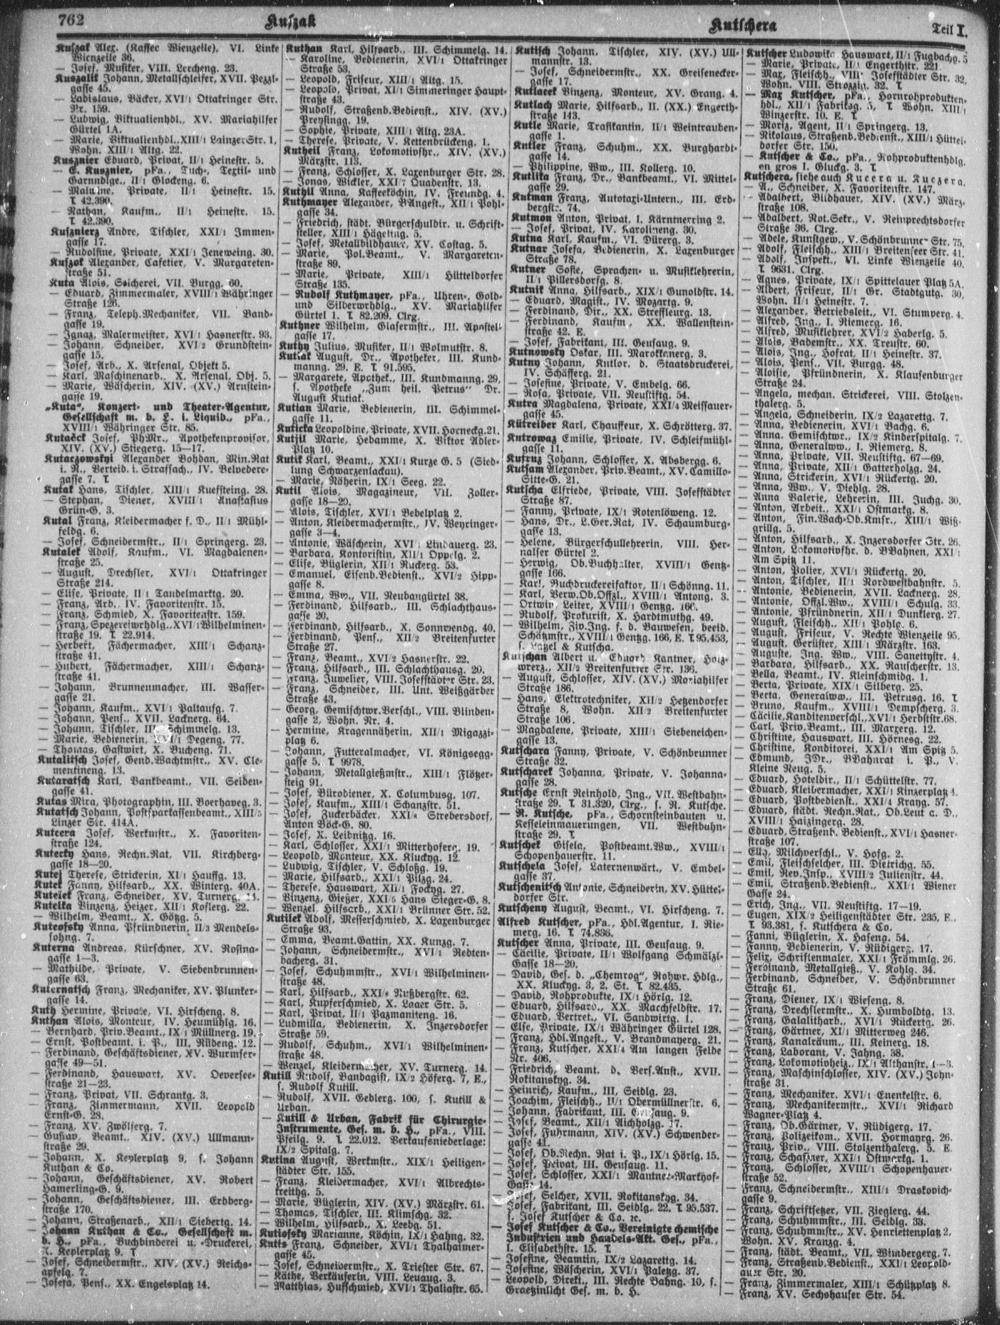 762
Kuszak
Kutschera
Teil I.
Kuszak Alex. (Kaffee Wienzelle), VI. Linke
Wienzeile 36.
— Josef, Musiker, VIII. Lercheng. 23.
Kuszalit Johann, Metallschleifer, XVII. Pezzl-
gasse 45.
— Ladislaus, Bäcker, XVI/1 Ottakringer Str.
Nr. 159.
— Ludwig, Viktualienhdl., XV. Mariahilfer
Gürtel 1A.
— Marie, Viktualienhdl., XIII/1 Lainzer Str. 1,
Wohn. XIII/1 Altg. 22.
Kusznier Eduard, Privat, II/1 Heinestr. 5.
— E. Kusznier, pFa., Tuch-, Textil- und
Garnndlge., II/1 Glockeng. 6.
— Malvine, Private, II/1 Heinestr. 15.
T 42.390.
— Nathan, Kaufm., II/1 Heinestr. 15.
T 42.390.
Kusznierz Andre, Tischler, XXI/1 Immen-
gasse 17.
— Rudolfine, Private, XXI/1 Jeneweing. 30.
Kuszok Alexander, Cafetier, V. Margareten-
straße 51.
Kuta Alois, Selcherei, VII. Burgg. 60.
— Eduard, Zimmermaler, XVIII/1 Währinger
Straße 126.
— Franz, Teleph.Mechaniker, VII. Band-
gasse 19.
— Ignaz, Malermeister, XVI/1 Hasnerstr. 93.
— Johann, Schneider, XVI/2 Grundstein-
gasse 15.
— Josef, Arb., X. Arsenal, Objekt 5.
— Karl, Maschinenarb., X. Arsenal, Obj. 5.
— Marie, Wäscherin, XIV. (XV.) Arnstein-
gasse 19.
„Kuta", Konzert- und Theater-Agentur,
Gesellschaft m. b. L. i. Liquid., pFa.,
XVIII/1 Währinger Str. 85.
Kutaček Josef, PhMr., Apothekenprovisor,
XIV. (XV.) Sieger­g. 15—17.
Kutaczowskyi Alexander Bohdan, Min.Rat
i. R., Verteid. i. Strafsach., IV. Belvedere-
gasse 7. T
Kutak Hans, Tischler, XIII/1 Kueffsteing. 28.
— Stephan, Diener, XVIII/1 Anastasius
Grün-G. 3.
Kutal Franz, Kleidermacher f. D., II/1 Mühl-
feldg. 6.
— Josef, Schneidermstr., II/1 Springerg. 23.
Kutalek Adolf, Kaufm., VI. Magdalenen-
straße 25.
— August, Drechsler, XVI/1 Ottakringer
Straße 214.
— Elise, Private, II/1 Tandelmarktg. 20.
— Franz, Arb., IV. Favoritenstr. 15.
— Franz, Schmied, X. Favoritenstr. 159.
— Franz, Spezereiwrhdlg., XVI/1 Wilhelminen-
straße 19. T 22.914.
— Herbert, Fächermacher, XIII/1 Schanz-
straße 41.
— Hubert, Fächermacher, XIII/1 Schanz-
straße 41.
— Johann, Brunnenmacher, III. Wasser-
gasse 21.
— Johann, Kaufm., XVI/1 Paltaufg. 7.
— Johann, Pens., XVII. Lacknerg. 64.
— Johann, Tischler, III. Schimmelg. 13.
— Marie, Bedienerin, XVI/1 Degeng. 77.
— Thomas, Gastwirt, X. Bucheng. 71.
Kutalitsch Josef, Gend.Wachtmstr., XV. Cle-
mentineng. 13.
Kutaratsch Karl, Bankbeamt., VII. Seiden-
gasse 41.
Kutas Mira, Photographin, III. Boerhaveg. 3.
Kutatsch Johann, Postsparkassenbeamt., XIII/5
Linzer Str. 414A.
Kutcera Josef, Werkmstr., X. Favoriten-
straße 124.
Kutecky Hans, Rechn.Rat, VII. Kirchberg-
gasse 18—20.
Kutej Therese, Strickerin, XI/1 Hauffg. 13.
Kutek Fanny, Hilfsarb., XX. Winterg. 40A.
Kutelek Franz, Schneider, XV. Turnerg.
Kutelka Vinzenz, Heizer, XII/1 Koflerg. 22.
— Wilhelm, Beamt., X. Götzg. 5.
Kuteofsky Anna, Pfründnerin, II/2 Mendels-
sohng. 7.
Kuterna Andreas, Kürschner, XV. Rosina-
gasse 1—3.
— Mathilde, Private, V. Siebenbrunnen-
gasse 63.
Kuternatsch Franz, Mechaniker, XV. Plunker-
gasse 14.
Kuth Hermine, Private, VI. Hirscheng. 8.
Kuthan Alois, Monteur, IV. Heumühlg. 16.
— Bernhard, Priv.Beamt., IX/1 Müllnerg. 19.
— Ernst, Postbeamt. i. P., III. Rüdeng. 12.
— Ferdinand, Geschäftsdiener, XV. Wurmser-
gasse 49—51.
— Ferdinand, Hauswart, XV. Oeversee-
straße 21—23.
— Franz, Privat, VII. Schrankg. 3.
— Franz, Zimmermann, XVII. Leopold
Ernst-G. 28.
— Franz, XV. Zwölferg. 7.
— Gustav, Beamt., XIV. (XV.) Ullmann-
straße 29.
— Johann, X. Keplerplatz 9, s. Johann
Kuthan & Co.
— Johann, Geschäftsdiener, XV. Robert
Hamerling-G. 9.
— Johann, Geschäftsdiener, III. Erdberg-
straße 170.
— Johann, Straßenarb., XII/1 Siebertg. 14.
— Johann Kuthan & Co., Gesellschaft m.
b. H., pFa., Buchbinderei u. -Druckerei,
X. Keplerplatz 9. T
— Josef, Schneidermstr., XIV. (XV.) Reichs-
apfelg. 7.
— Josefa, Pens., XX. Engelsplatz 14.
Kuthan Karl, Hilfsarb., III. Schimmelg. 14.
— Karoline, Bedienerin, XVI/1 Ottakringer
Straße 53.
— Leopold, Friseur, XIII/1 Altg. 15.
— Leopold, Privat, XI/1 Simmeringer Haupt-
straße 43.
— Rudolf, Straßenb.Bedienst., XIV. (XV.)
Preysingg. 19.
— Sophie, Private, XIII/1 Altg. 23A.
— Therese, Private, V. Kettenbrückeng. 1.
Kutheil Franz, Lokomotivfhr., XIV. (XV.)
Märzstr. 113.
— Franz, Schlosser, X. Laxenburger Str. 28.
— Jonas, Wickler, XXI/7 Quadenstr. 13.
Kuthyl Anna, Kassekochin, IV. Freundg. 4.
Kuthmayer Alexander, BAngest., XII/1 Pohl-
gasse 34.
— Friedrich, städt. Bürgerschuldir. u. Schrift-
steller, XIII/1 Hägeling. 5.
— Josef, Metallbildhauer, XV. Costag. 5.
— Marie, Pol.Beamt., V. Margareten-
straße 89.
— Marie, Private, XIII/1 Hütteldorfer
Straße 135.
— Rudolf Kuthmayer, pFa., Uhren-, Gold-
und Silberwrhdlg., XV. Mariahilfer
Gürtel 1. T 82.209. Clrg.
Kuthner Wilhelm, Glasermstr., III. Apostel-
gasse 17.
Kuthy Julius, Musiker, II/1 Wolmutstr. 8.
Kutiak August, Dr., Apotheker, III. Kund-
manng. 29. E. T 91.595.
— Margarete, Apothek., III. Kundmanng. 29,
s. Apotheke „Zum heil. Petrus" Dr.
August Kutiak.
Kutian Marie, Bedienerin, III. Schimmel-
gasse 11.
Kuticka Leopoldine, Private, XVII. Hornecka. 21.
Kutjil Marie, Hebamme, X. Viktor Adler-
Platz 10.
Kutik Karl, Beamt., XXI/1 Kurze G. 5 (Sied-
lung Schwarzenlackau).
— Marie, Näherin, IX/1 Seeg. 22.
Kutil Alois, Magazineur, VII. Zoller-
gasse 18—20.
— Alois, Tischler, XVI/1 Bebelplatz 2.
— Anton, Kleidermachermstr., IV. Weyringer-
gasse 3—4.
— Antonie, Wäscherin, XVI/1 Lindauerg. 23.
— Barbara, Kontoristin, XII/1 Oppelg. 2.
— Elise, Büglerin, XII/1 Ruckerg. 53.
— Emanuel, Eisenb.Bedienst., XVI/2 Hipp-
gasse 8.
— Emma, Ww., VII. Neubaugürtel 38.
— Ferdinand, Hilfsarb., III. Schlachthaus-
gasse 20.
— Ferdinand, Hilfsarb., X. Sonnwendg. 40.
— Ferdinand, Pens., XII/2 Breitenfurter
Straße 27.
— Franz, Beamt., XVI/2 Hasnerstr. 22.
— Franz, Hilfsarb., III. Schlachthausg. 20.
— Franz, Juwelier, VIII. Josefstädter Str. 23.
— Franz, Schneider, III. Unt. Weißgärber
Straße 43.
— Georg, Gemischtw.Verschl., VIII. Blinden-
gasse 2, Wohn. Nr. 4.
— Hermine, Kragennäherin, XII/1 Migazzi-
platz 6.
— Johann, Futteralmacher, VI. Königsegg-
gasse 5. T 9978.
— Johann, Metallgießmstr., XIII/1 Flötzer-
steig 91.
— Josef, Bürodiener, X. Columbusg. 107.
— Josef, Kaufm., XIII/1 Schanzstr. 51.
— Josef, Zuckerbäcker, XXI/4 Strebersdorf,
Anton Böck-G. 80.
— Josef, X. Leibnitzg. 16.
— Karl, Schlosser, XXI/1 Mitterhoferg. 19.
— Leopold, Monteur, XX. Kluckyg. 12.
— Ludwig, Tischler, V. Schloßg. 19.
— Marie, Hilfsarb., XXI/1 Pilzg. 24.
— Therese, Hauswart, XII/1 Fockyg. 27.
— Vinzenz, Gießer, XXI/5 Hans Sieger-G. 8.
— Wenzel, Hilfsarb., XXI/1 Brünner Str. 52.
Kutilek Adolf, Messerschmied, X. Laxenburger
Straße 93.
— Emma, Beamt.Gattin, XX. Kunzg. 7.
— Johann, Schneidermstr., XVI/1 Redten-
bacherg. 31.
— Josef, Schuhmstr., XVI/1 Wilhelminen-
straße 48.
— Karl, Hilfsarb., XXI/4 Nußbergstr. 62.
— Karl, Kupferschmied, X. Laaer Str. 5.
— Karl, Privat, II/1 Pazmaniteng. 16.
— Ludmilla, Bedienerin, X. Inzersdorfer
Straße 59.
— Rudolf, Schuhm., XVI/1 Wilhelminen-
straße 48.
— Wenzel, Kleidermacher, XV. Turnerg. 14.
Kutill Rudolf, Bandagist, IX/2 Höferg. 7, E.,
s. Rudolf Kutill.
— Rudolf, XVII. Geblerg. 100, s. Kutill &
Urban.
— Kutill & Urban, Fabrik für Chirurgie-
Instrumente, Ges. m. b. H., pFa., VIII.
Pfeilg. 9. T 22.012. Verkaufsniederlage:
IX/2 Spitalg. 7.
Kutina August, Werkmstr., XIX/1 Heiligen-
städter Str. 155.
— Franz, Kleidermacher, XVI/1 Albrechts-
kreithg. 5.
— Marie, Büglerin, XIV. (XV.) Märzstr. 61.
— Thomas, Tischler, III. Klimschg. 32.
— Wilhelm, Hilfsarb., X. Leebg. 51.
Kutiofsky Marianne, Köchin, IX/1 Hahng. 32.
Kutis Franz, Schneider, XVI/1 Thalhaimer-
gasse 45.
— Josef, Schneidermstr., X. Triester Str. 67.
— Käthe, Verkäuferin, VIII. Leuaug. 3.
— Matthias, Hufschmied, XVI/1 Thaliastr. 65.
Kutisch Johann, Tischler, XIV. (XV.) Ull-
mannstr. 13.
— Josef, Schneidermstr., XX. Greisenecker-
gasse 17.
Kutlacek Vinzenz, Monteur, XV. Grang. 4.
Kutlach Marie, Hilfsarb., II. (XX.) Engerth-
straße 143.
Kutle Marie, Trafikantin, II/1 Weintrauben-
gasse 1.
Kutler Franz, Schuhm., XX. Burghardt-
gasse 14.
— Philippine, Ww., III. Kollerg. 10.
Kutlita Franz, Dr., Bankbeamt., VI. Mittel-
gasse 29.
Kutman Franz, Autotaxi-Untern., III. Erd-
bergstr. 74.
Kutmon Anton, Privat, I. Kärntnerring 2.
— Josef, Privat, IV. Karolineng. 30.
Kutna Karl, Kaufm., VI. Dürerg. 3.
Kutnar Josefa, Bedienerin, X. Laxenburger
Straße 78.
Kutner Sofie, Sprachen- u. Musiklehrerin,
II/1 Pillersdorfg. 8.
Kutnik Anna, Hilfsarb., XIX/1 Gunoldstr. 14.
— Eduard, Magist., IV. Mozartg. 9.
— Ferdinand, Dir., XX. Streffleurg. 13.
— Ferdinand, Kaufm., XX. Wallenstein-
straße 42. E. T
— Josef, Fabrikant, III. Geusaug. 9.
Kutnowsky Oskar, III. Marokkanerg. 3.
Kutny Johann, Kutlor. d. Staatsdruckerei,
IV. Schäfferg. 21.
— Josefine, Private, V. Embelg. 66.
— Rosa, Private, VII. Neustiftg. 54.
Kutra Magdalena, Private, XXI/4 Meissauer-
gasse 45.
Kutreiber Karl, Chauffeur, X. Schrötterg. 37.
Kutrowaz Emilie, Private, IV. Schleifmühl-
gasse 11.
Kutruz Johann, Schlosser, X. Absbergg. 6.
Kutsam Alexander, Priv.Beamt., XV. Camillo-
Sitte-G. 21.
Kutscha Elfriede, Private, VIII. Josefstädter
Straße 87.
— Fanny, Private, IX/1 Rotenlöweng. 12.
— Hans, Dr., L.Ger.Rat, IV. Schaumburg-
gasse 13.
— Helene, Bürgerschullehrerin, VIII. Her-
nalser Gürtel 2.
— Herwig, Ob.Buchhalter, XVIII/1 Gentz-
gasse 166.
— Karl, Buchdruckereifaktor, II/1 Schönng. 11.
— Karl, Verw.Ob.Offzl., XVIII/1 Antong. 3.
— Ortwin Leiter, XVIII/1 Gentzg. 166.
— Rudolf, Prokurist, X. Hardtmuthg. 49.
— Wilhelm, Ziv.Ing. f. d. Bauwesen, beeid.
Schätzmstr., XVIII/1 Gentzg. 166, E. T 95.453,
s. Lazel & Kutscha.
Kutschan Albert u. Eduard Kantner, Holz-
wverkz., XII/2 Breitenfurter Str. 136.
— August, Schlosser, XIV. (XV.) Mariahilfer
Straße 186.
— Hans, Elektrotechniker, XII/2 Hetzendorfer
Straße 8, Wohn. XII/2 Breitenfurter
Straße 106.
— Magdalene, Private, XIII/1 Siebeneichen-
gasse 13.
Kutschara Fanny, Private, V. Schönbrunner
Straße 32.
Kutscharek Johanna, Private, V. Johanna-
gasse 28.
Kutsche Ernst Reinhold, Ing., VII. Westbahn-
straße 29. T 31.320, Clrg., s. R. Kutsche.
— R. Kutsche, pFa., Schornsteinbauten u.
Kesseleinmauerungen, VII. Westbahn-
straße 29. T
Kutschek Gisela, Postbeamt.Ww., XVIII/1
Schopenhauerstr. 11.
Kutschela Josef, Laternenwärt., V. Embel-
gasse 37.
Kutschenitsch Antonie, Schneiderin, XV. Hüttel-
dorfer Str.
Kutscheny August, Beamt., VI. Hirscheng. 7.
Alfred Kutscher, pFa., Hdl.Agentur, I. Rie-
merg. 16. T 74.898.
Kutscher Anna, Private, III. Geusaug. 9.
— Cäcilie, Private, II/1 Wolfgang Schmälzl-
Gasse 18—20.
— David, Ges. d. „Chemrog", Rohwr. Hdlg.,
XX. Kluckyg. 3, 2. St. T 82.435.
— David, Rohprodukte, IX/1 Hörlg. 12.
— Eduard, Hilfsarb., XX. Marchfeldstr. 17.
— Eduard, Vertret., VI. Sandwirtg. 1.
— Else, Private, IX/1 Währinger Gürtel 128.
— Franz, Hdl.Angest., V. Brandmayerg. 21.
— Franz, Kutscher, XXI/4 Am langen Felde
Str. 406.
— Friedrich, Beamt. d. Vers.Anst., XVII.
Rokitanskyg. 34.
— Heinrich, Kaufm., III. Seidlg. 23.
— Joachim, Fleischh., II/1 Obermüllnerstr. 6.
— Johann, Fabrikant, III. Geusaug. 9.
— Josef, Beamt., XII/1 Aichholzg. 17.
— Josef, Fuhrmann, XIV. (XV.) Schwender-
gasse 41.
— Josef, Ob.Rechn. Rat i. P., IX/1 Hörlg. 15.
— Josef, Privat, III. Geusaug. 11.
— Josef, Schlosser, XXI/1 Mautner-Markhof-
Gasse 14.
— Josef, Selcher, XVII. Rokitanskyg. 34.
— Josef, Fabrikant, III. Seidlg. 22. T 95.537,
s. Josef Kutscher & Co. rc.
Josef Kutscher & Co., Vereinigte chemische
Industrien und Handels-Akt. Ges., pFa.,
I. Elisabethstr. 15. T
— Josefine, Beamtin, IX/2 Lazarettg. 14.
— Josefine, Wäscherin, XVI/1 Paletzg. 37.
— Leopold, Direkt., III. Rechte Bahng. 10, s.
Graetzinlicht Ges. m. b. H.
Kutscher Ludowika, Hauswart, II/1 Fugbachg. 5
— Marie, Private, II/1 Engerthstr. 221.
— Max, Fleischh., VIII. Josefstädter Str. 32,
Wohn. VIII. Strozzig. 32. T
— Max Kutscher, pFa., Hornrohprodukten-
hdl., XII/1 Fabriksg. 5, T Wohn. XIII/1
Winzerstr. 10. E. T
— Moriz, Agent, II/1 Springerg. 13.
— Nikolaus, Straßenb.Bedienst., XIII/1 Hüttel-
dorfer Str. 150.
— Kutscher & Co., pFa., Rohproduktenhdlg.
en gros I. Gluckg. 3. T
Kutschera, siehe auch Kucera u. Kuczera.
— A., Schneider, X. Favoritenstr. 147.
— Adalbert, Bildhauer, XIV. (XV.) März-
straße 108.
— Adalbert, Not.Sekr., V. Reinprechtsdorfer
Straße 36. Clrg.
— Adele, Kunstgew., V. Schönbrunner Str. 75.
— Adolf, Fleischh., XIII/1 Breitenseer Str. 41.
— Adolf, Inspekt., VI. Linke Wienzeile 40.
T 9631. Clrg.
— Agnes, Private, IX/1 Spittelauer Platz 5A.
— Albert, Friseur, II/1 Gr. Stadtgutg. 30,
Wohn. II/1 Heinestr. 7.
— Alexander, Betriebsleit., VI. Stumperg. 4.
— Alfred, Ing., I. Riemerg. 16.
— Alfred, Musiklehrer, XVI/2 Haberlg. 5.
— Alois, Bademstr., XX. Treustr. 60.
— Alois, Ing., Hofrat, II/1 Heinestr. 37.
— Alois, Pens., VII. Burgg. 48.
— Aloisie, Pfründnerin, X. Klausenburger
Straße 24.
— Angela, mechan. Strickerei, VIII. Stolzen-
thalerg. 5.
— Angela, Schneiderin, IX/2 Lazarettg. 7.
— Anna, Bedienerin, XVI/1 Bachg. 6.
— Anna, Gemischtw., IX/2 Kinderspitalg. 7.
— Anna, Generalsw., I. Riemerg. 8.
— Anna, Private, VII. Neustiftg. 67—69.
— Anna, Private, XII/1 Gatterholzg. 24.
— Anna, Strickerin, XVI/1 Rückertg. 20.
— Anna, Ww., V. Diehlg. 28.
— Anna Valerie, Lehrerin, III. Juchg. 30.
— Anton, Arbeit., XXI/1 Ostmarkg. 8.
— Anton, Fin.Wach-Ob.Kmsr., XIII/1 Wiß-
grillg. 5.
— Anton, Hilfsarb., X. Inzersdorfer Str. 26.
— Anton, Lokomotivfhr. d. BBahnen, XXI/1
Am Spitz 11.
— Anton, Polier, XVI/1 Rückertg. 20.
— Anton, Tischler, II/1 Nordwestbahnstr. 5.
— Antonie, Bedienerin, XVII. Lacknerg. 28.
— Antonie, Offzl.Ww., XVIII/1 Schulg. 33.
— Antonie, Pfründnerin, XII/1 Dunklerg. 27.
— August, Fleischh., XII/1 Pohlg. 6.
— August, Friseur, V. Rechte Wienzeile 95.
— August, Gerüster, XIII/1 Märzstr. 163.
— Auguste, Ing. Ww., VIII. Sanettystr. 4.
— Barbara, Hilfsarb., XX. Rauscherstr. 13.
— Bella, Beamt., IV. Kleinschmidg. 1.
— Berta, Private, XIX/1 Silberg. 25.
— Berta, Generalsw., III. Petrusg. 16. T
— Bruno, Kaufm., XVIII/1 Dempscherg. 3.
— Cäcilie, Kanditenverschl., XVI/1 Herbststr. 68.
— Carl, Priv.Beamt., III. Marxerg. 12.
— Christine, Hauswart, III. Hörnesg. 22.
— Christine, Konditorei, XXI/1 Am Spitz 5.
— Edmund, JDr., BBahnrat i. P., V.
Kleine Neug. 5.
— Eduard, Hoteldir., II/1 Schüttelstr. 77.
— Eduard, Kleibermacher, XXI/1 Kinzerplatz 4.
— Eduard, Postbedienst., XXI/4 Krayg. 57.
— Eduard, städt. Rechn.Rat, Ob.Leut a. D.,
XVIII/1 Haizingerg. 28.
— Eduard, Straßenb. Bedienst., XVI/1 Hasner-
straße 107.
— Elis. Milchverschl., V. Hofg. 2.
— Emil, Fleischselcher, III. Dietrichg. 55.
— Emil, Rev.Insp., XVIII/2 Julienstr. 44.
— Emil, Straßenb.Bedienst., XXI/1 Wiener
Gasse 24.
— Erich, Ing., VII. Neustiftg. 17—19.
— Eugen, XIX/2 Heiligenstädter Str. 235, E.,
T 93.381, s. Kutschera & Co.
— Fanni, Büglerin, X. Hafeng. 54.
— Fanny, Bedienerin, V. Rüdigerg. 17.
— Felix, Schriftenmaler, XXI/1 Frömmlg. 26.
— Ferdinand, Metallgieß., V. Kohlg. 34.
— Ferdinand, Schneider, V. Schönbrunner
Straße 61.
— Franz, Diener, IX/1 Wieseng. 8.
— Franz, Drechslermstr., X. Humboldtg. 13.
— Franz, Galalitharb., XVI/1 Rückertg. 26.
— Franz, Gärtner, XI/1 Mitterweg 246.
— Franz, Kanalräum., III. Keinerg. 18.
— Franz, Laborant, V. Jahng. 38.
— Franz, Lokomotivheiz., IX/1 Althanstr. 1—3.
— Franz, Maschinschlosser, XIV. (XV.) John-
straße 31.
— Franz, Mechaniker, XVI/1 Enenkelstr. 6.
— Franz, Mechanikermstr., XVI/1 Richard
Wagner-Platz 4.
— Franz, Ob.Gärtner, V. Rüdigerg. 17.
— Franz, Polizeikom., XVII. Hormayrg. 26.
— Franz, Priv., VIII. Stolzenthalerg. 5. E.
— Franz, Schaffner, XXI/1 Ostmerkg. 1.
— Franz, Schlosser, XVIII/1 Schopenhauer-
straße 52.
— Franz, Schneidermstr., XIII/1 Draskovich-
gasse 9.
— Franz, Schriftsetzer, VII. Zieglerg. 44.
— Franz, Schuhmstr., III. Seidlg. 33.
— Franz, Schuhmstr., XV. Henriettenplatz 2,
Wohn. XV. Kranzg. 4.
— Franz, städt. Beamt., VII. Wimbergerg. 7.
— Franz, Straßenb.Bedienst., XXI/1 Leopold-
auer Str. 20.
— Franz, Zimmermaler, XIII/1 Schützplatz 8.
— Franz, XV. Sechshauser Str. 54.